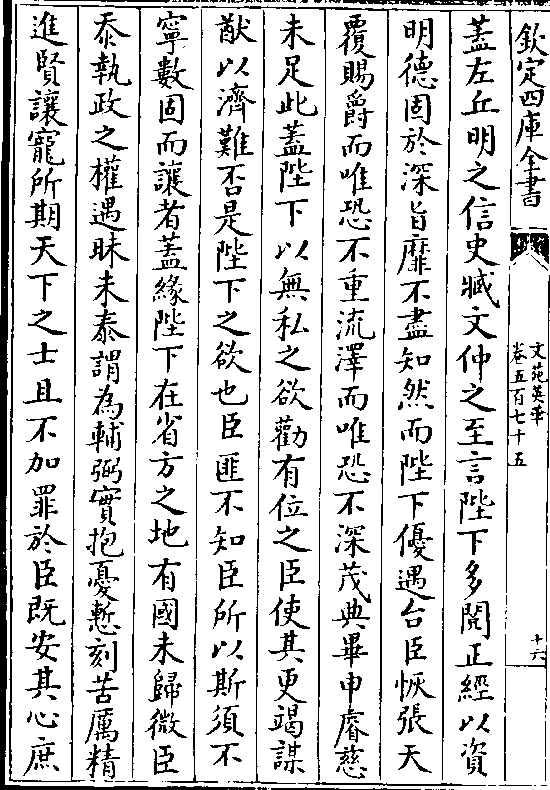 欽定四庫全書
文苑英華
卷五百七十五
十六
蓋左丘明之信史臧文仲之至言陛下多閱正經以資
明德固於深旨靡不盡知然而陛下優遇台臣恢張天
覆賜爵而唯恐不重流澤而唯恐不深茂典畢申睿慈
未足此蓋陛下以無私之欲勸有位之臣使其更竭謀
猷以濟難否是陛下之欲也臣匪不知臣所以斯須不
寧數固而讓者蓋緣陛下在省方之地有國未歸微臣
忝執政之權遇昧未泰謂為輔弼實抱憂慙刻苦厲精
進賢讓寵所期天下之士且不加罪於臣既安其心庶